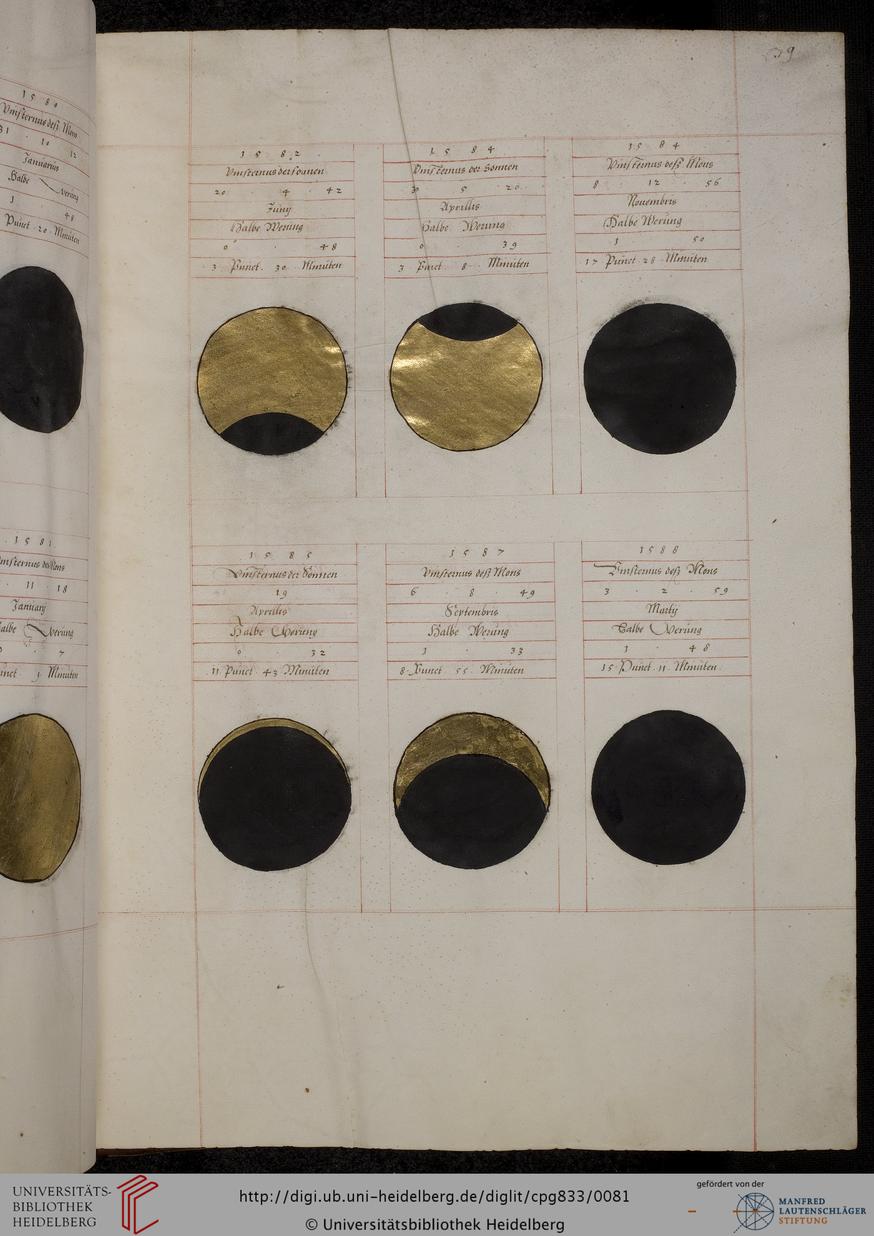 39
1 5 8 0
31 · 10 · 12
Januarius
Halbe Werung
1 · 48
Punct · 20 · Minuten
1 5 8 1
· 11 · 18
January
Halbe Werung
0 · 7
Punct 3 Minuten
1 5 8 2
Vinsternus der sonnen
20 · 4 · 42
Junij
Halbe Werung
0 · 48
3 Punct · 30 · Minuten
1 5 8 4
Vinsternus der Sonnen
30 5 · 20
Aprillis
Halbe Werung
0 · 39
3 Punct 8 · Minuten
1 5 8 4
Vinsternus deß Mons
8 · 12 · 56
Nouembris
Halbe Werung
1 50
17 Punct 28 Minuten
1 5 8 5
Vinsternus der Sonnen
19
Aprillis
Halbe Werung
0 · 32
11 Punct · 43 Minuten
1 5 8 7
Vinsternus deß Mons
6 · 8 · 49
Septembris
Halbe Werung
1 · 33
8 Punct 55 · Minuten
1 5 8 8
Vinsternus deß Mons
3 · 2 · 59
Martij
Halbe Werung
1 · 48
15 Punct 11 Minuten
UNIVERSITÄTS-
BIBLIOTHEK
HEIDELBERG
http://digi.ub.uni-heidelberg.de/diglit/cpg833/0081
© Universitätsbibliothek Heidelberg
gefördert von der
MANFRED
LAUTENSCHLÄGER
STIFTUNG